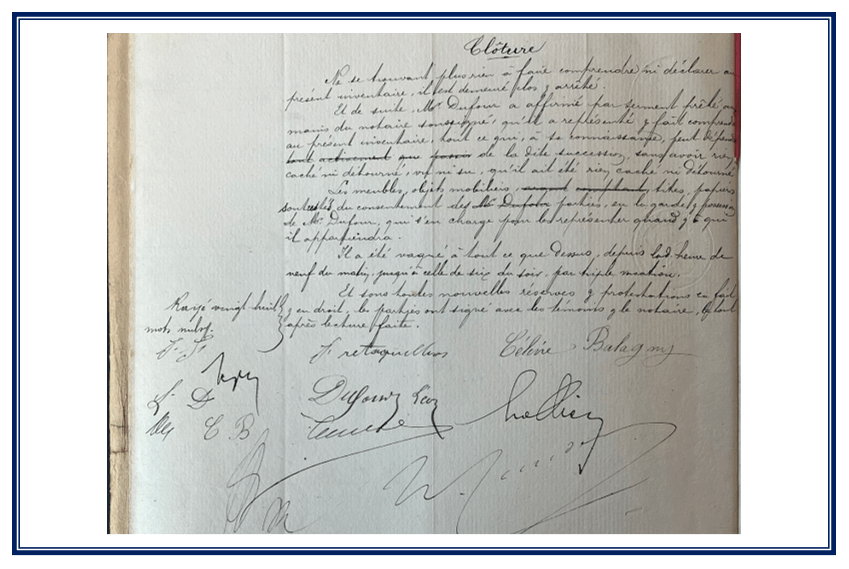 Clôture
Ne se trouvant plus rien à faire comprendre ni déclarer au
présent inventaire, il est demeuré clos & arrêté.
Et de suite Mr Dufour a affirmé par serment prêté au
mains du notaire soussigné, qu'il a représenté & fait comprendre
au présent inventaire, tout ce qui, à sa connaissance, peut dépendre
tout activement que passiv de la dite succession, sans avoir rien
caché ni détourné, vu ni su, qu'il ait été rien caché ni détourné
Les meubles, objets mobiliers, argent comptant, titres, papiers
sont restés, du consentement des Mr Dufour parties, en la garde & possession
de Mr Dufour, qui s'en charge pour les représenter quand & à qui
il appartiendra.
Il a été vaqué à tout ce que dessus, depuis lad. heure de
neuf du matin, jusqu'à celle de six du soir, par triple vacation.
Et sous toutes nouvelles réserves & protestations en fait
Rayé vingt huit & en droit, les parties ont signé avec les témoins & le notaire, le tout
mots nuls. après lecture faite.
Céline Balagny
D
Dufour
C B